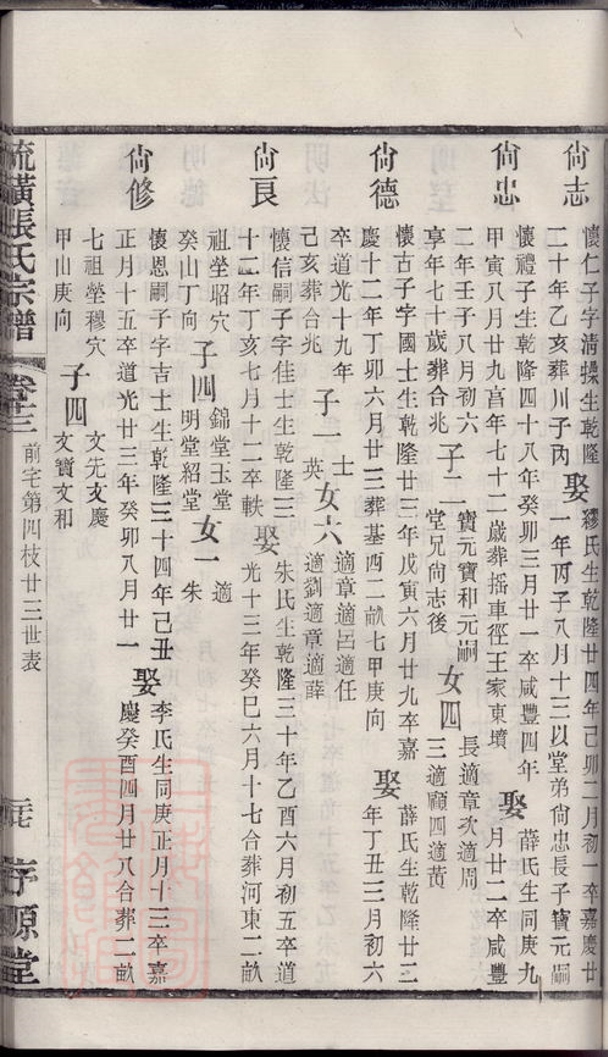 尙志
懷仁子字清操生乾隆
二十年乙亥葬川子丙
娶
繆氏生乾隆廿四年己卯二月初一卒嘉慶廿
一年丙子八月十三以堂弟尙忠長子寶元嗣
尙忠
懷禮子生乾隆四十八年癸卯三月廿一卒咸豐四年
甲寅八月廿九享年七十二歲葬搖車徑王家東墳
娶
薛氏生同庚九
月廿二卒咸豐
二年壬子八月初六
享年七十歲葬合兆
子二
寶元寶和元嗣
堂兄尙志後
女四
長適章次適周
三適顧四適黃
尙德
懷古子字國士生乾隆廿三年戊寅六月廿九卒嘉
慶十二年丁卯六月廿三葬基西二畝七甲庚向
娶
薛氏生乾隆廿三
年丁丑三月初六
卒道光十九年
己亥葬合兆
子一
士
英
女六
適章適呂適任
適劉適章適薛
尙良
懷信嗣子字佳士生乾隆三
十二年丁亥七月十二卒軼
娶
朱氏生乾隆三十年乙酉六月初五卒道
光十三年癸巳六月十七合葬河東二畝
祖塋昭穴
癸山丁向
子四
錦堂玉堂
明堂紹堂
女一
適
朱
尙修
懷恩嗣子字吉士生乾隆三十四年己丑
正月十五卒道光廿三年癸卯八月廿一
娶
李氏生同庚正月十三卒嘉
慶癸酉四月廿八合葬二畝
七祖塋穆穴
甲山庚向
子四
文先文慶
文寶文和
流璜張氏宗譜
卷十三
前宅第四枝廿三世表
序源堂